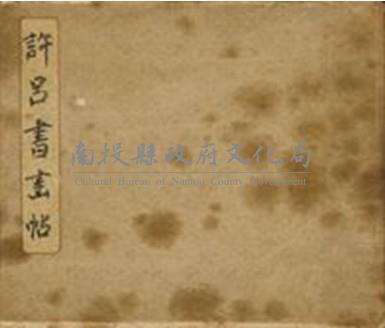 許呂書画帖
南投縣政府文化局
Cultural Bureau of Nantou County Government